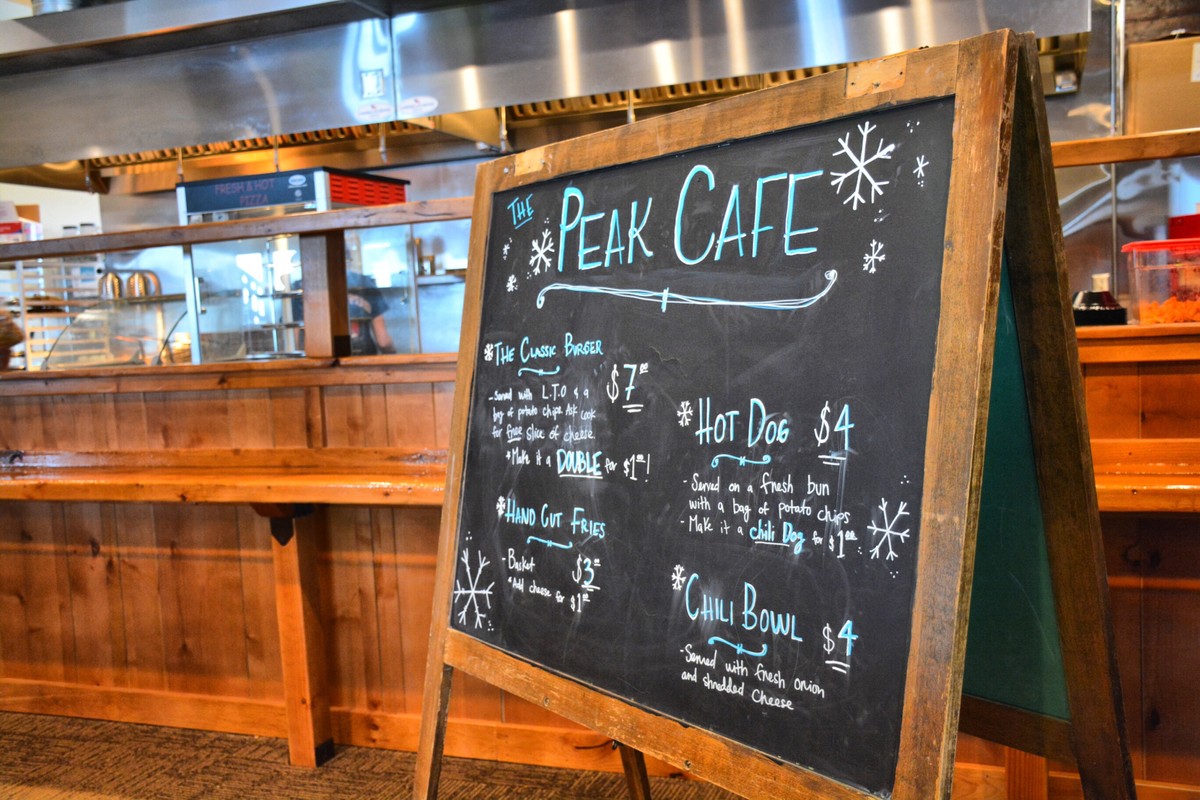 FRESH & HOT
PIZZA
THE
PEAK CAFE
THE CLASSIC BURGER
$7.00
-Served with L.T.O & a
bag of potato chips. Ask cook
for free slice of cheese.
*Make it a DOUBLE for $1.00!
HAND CUT FRIES
-Basket $3.00
*Add cheese for $1.00
HOT DOG $4
-Served on a fresh bun
with a bag of potato chips
-Make it a chili Dog for $1.00
CHILI BOWL $4
-Served with fresh onion
and shredded cheese